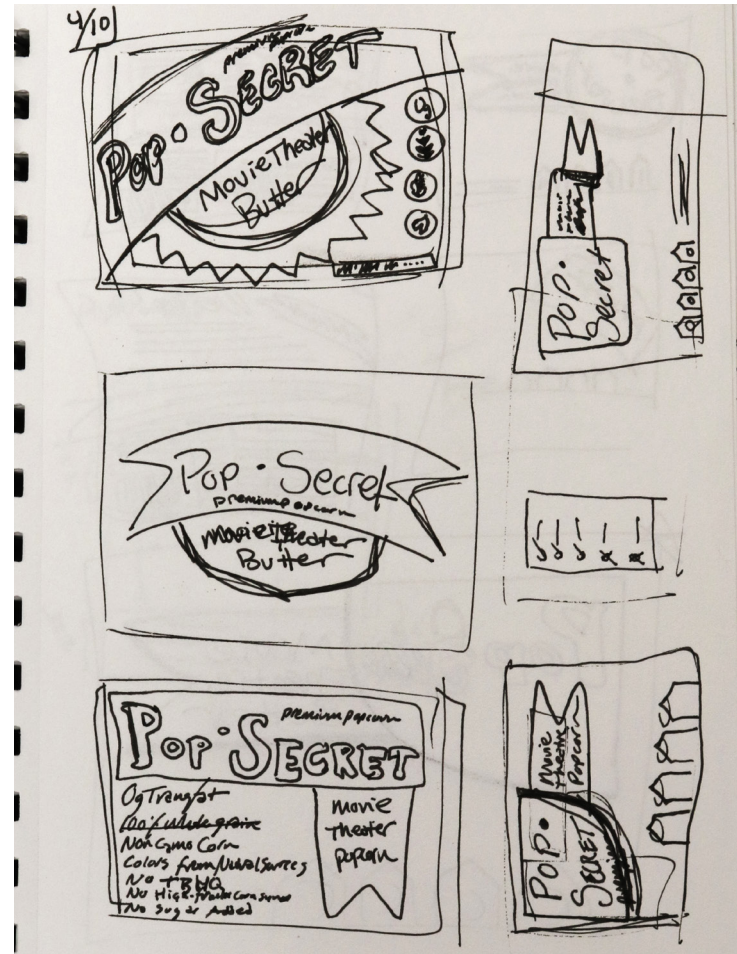 4/10
premium popcorn
Pop • SECRET
Movie Theater
Butter
Pop •
Secret
Pop • Secret
premium popcorn
Movie Theater
Butter
premium popcorn
Pop • SECRET
0g Transfat
100% whole grain
Non GMO Corn
Colors from Natural Sources
No TBHQ
No High-fructose Corn Syrup
No Sugar Added
Movie
Theater
popcorn
Movie
Theatre
Popcorn
POP •
SECRET